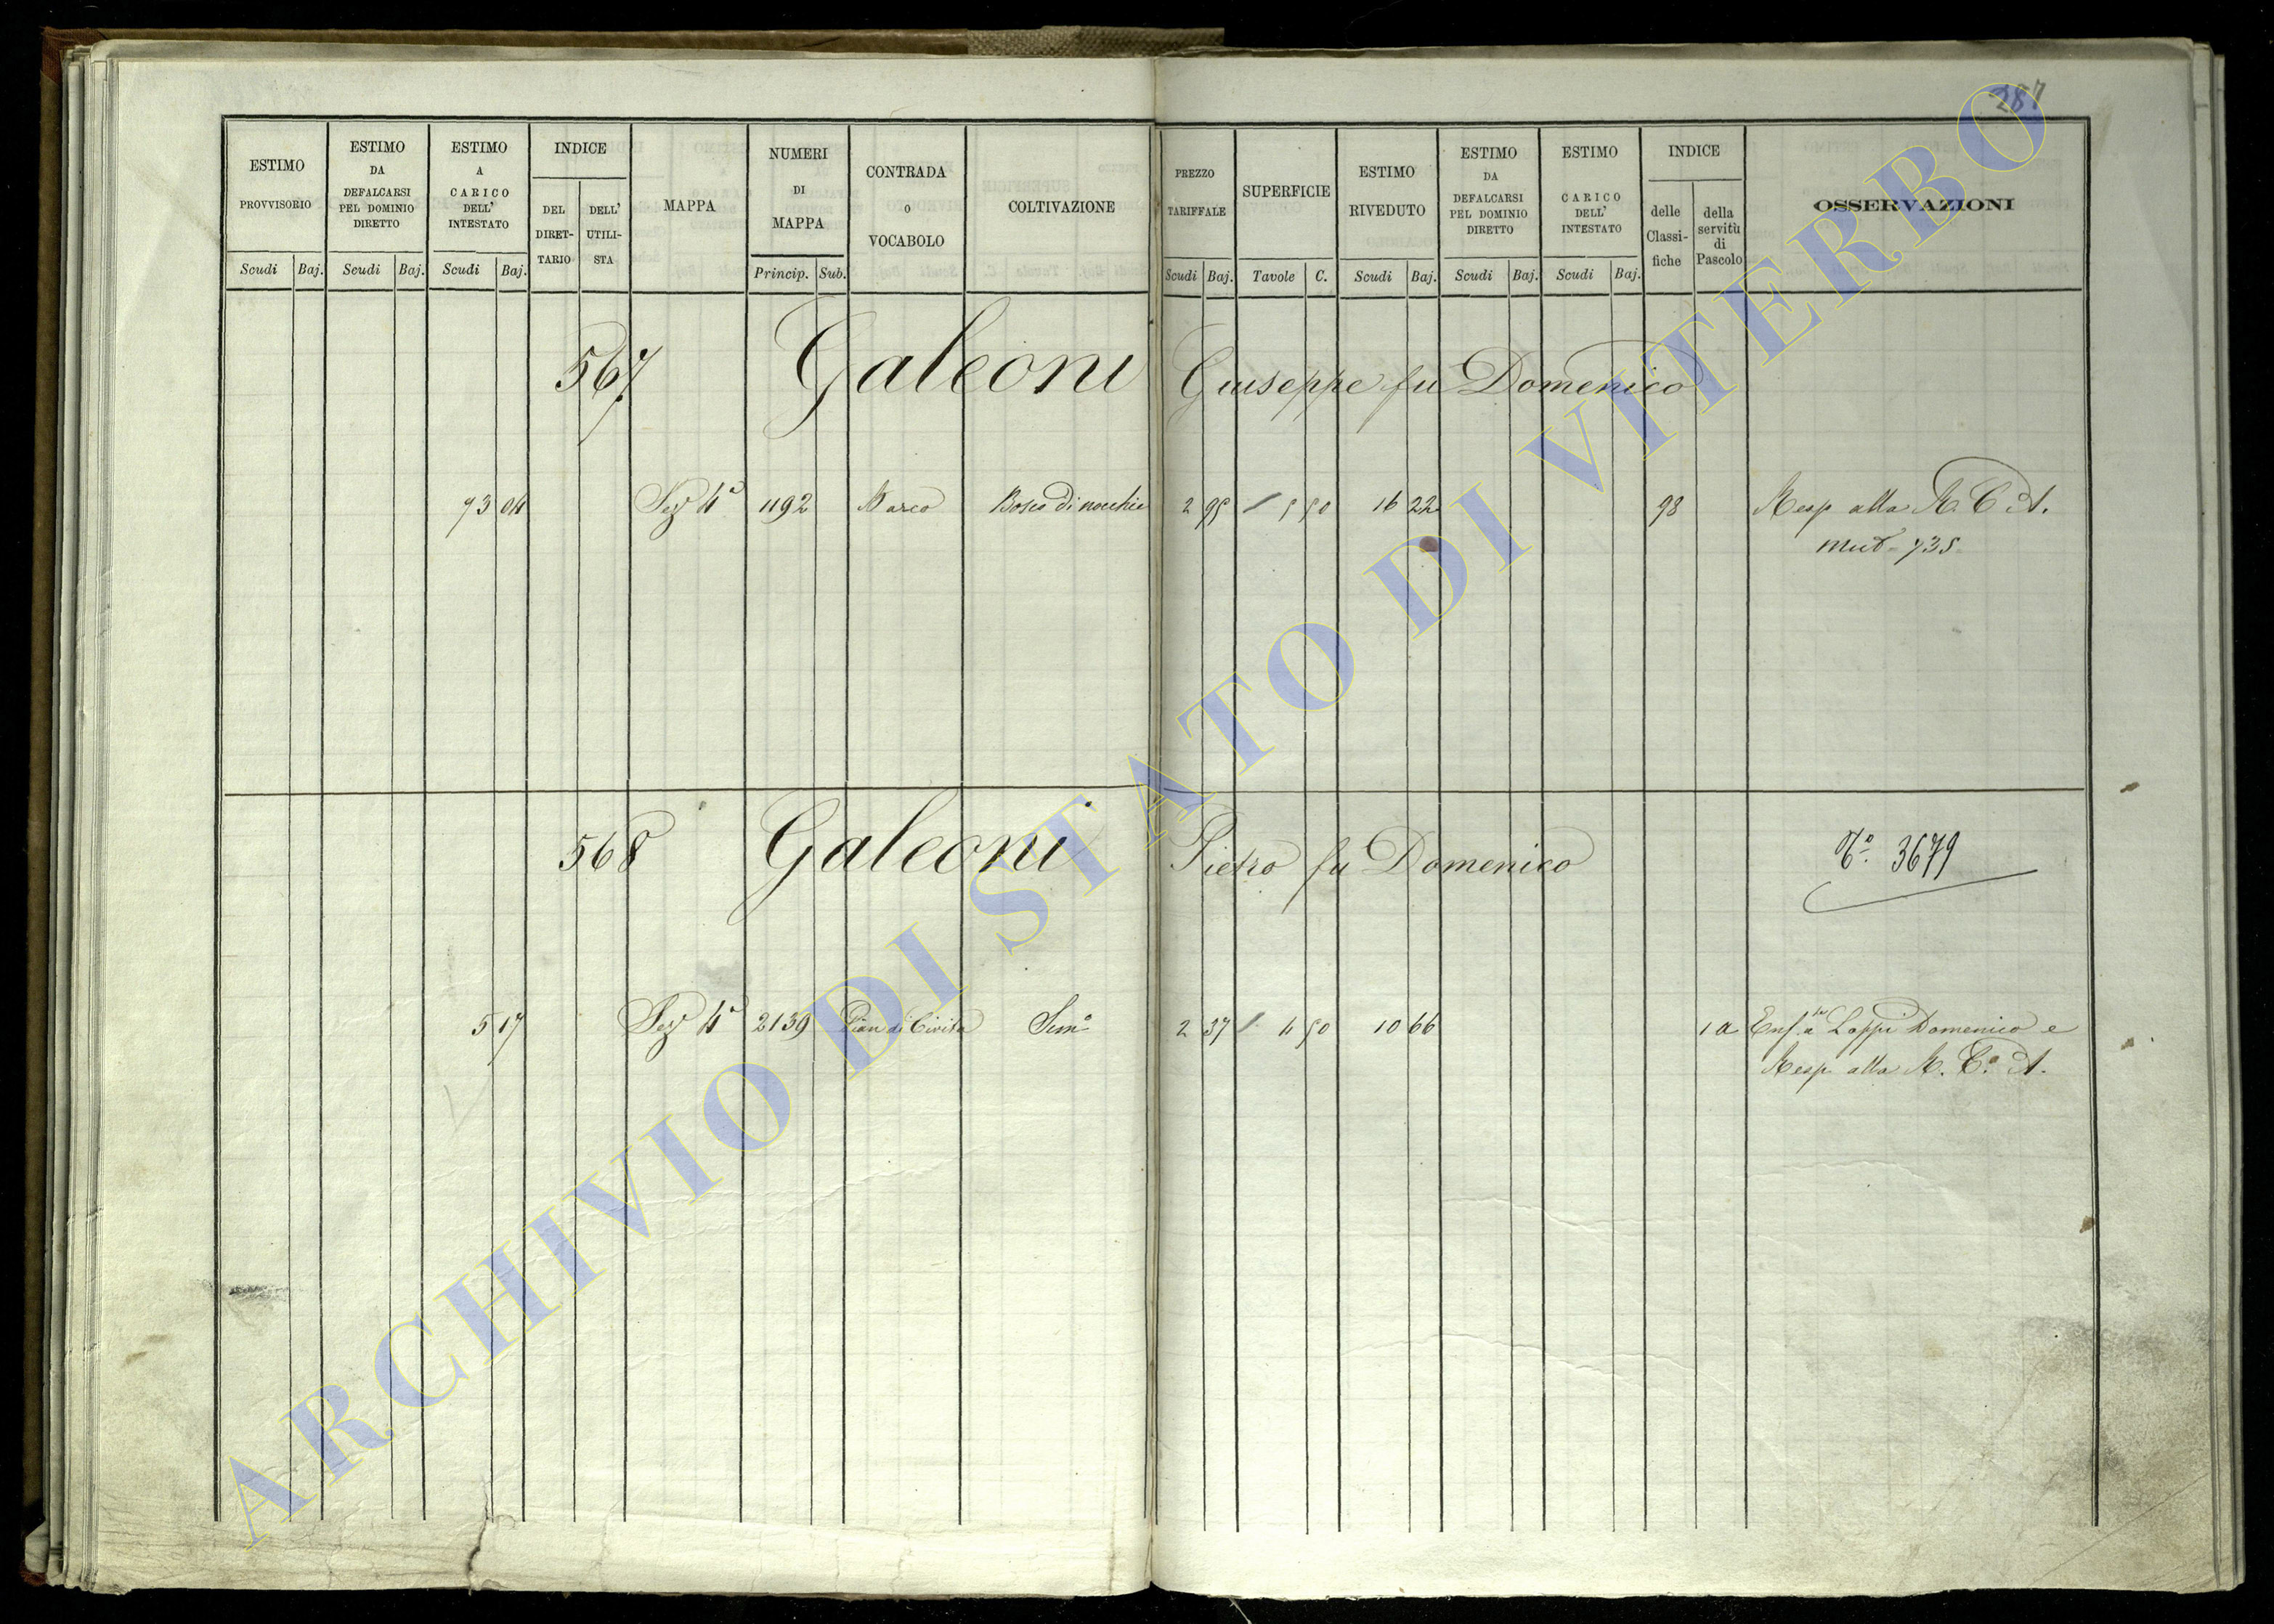 287
ESTIMO PROVVISORIO | ESTIMO DA DEFALCARSI PEL DOMINIO DIRETTO | ESTIMO A CARICO DELL' INTESTATO | INDICE | MAPPA | NUMERI DI MAPPA | CONTRADA O VOCABOLO | COLTIVAZIONE | PREZZO TARIFFALE | SUPERFICIE | ESTIMO RIVEDUTO | ESTIMO DA DEFALCARSI PEL DOMINIO DIRETTO | ESTIMO CARICO DELL' INTESTATO | INDICE | OSSERVAZIONI
DEL DIRETTARIO | DELL' UTILISTA | delle Classifiche | della servitù di Pascolo
Scudi | Baj. | Scudi | Baj. | Scudi | Baj. | Princip. | Sub. | Scudi | Baj. | Tavole | C. | Scudi | Baj. | Scudi | Baj. | Scudi | Baj.
567 Galeoni Giuseppe fu Domenico
73 04 Sez 4a 1192 Marco Bosco di nocchie 2 95 5 50 16 22 98 Resp alla R. C. A.
mut 735
568 Galeoni Pietro fu Domenico No. 3679
5 17 Sez 4a 2139 Pian di Civita Semo 2 37 4 50 10 66 1 a Enfta a Lappi Domenico e
Resp alla R. Ca A.
ARCHIVIO DI STATO DI VITERBO